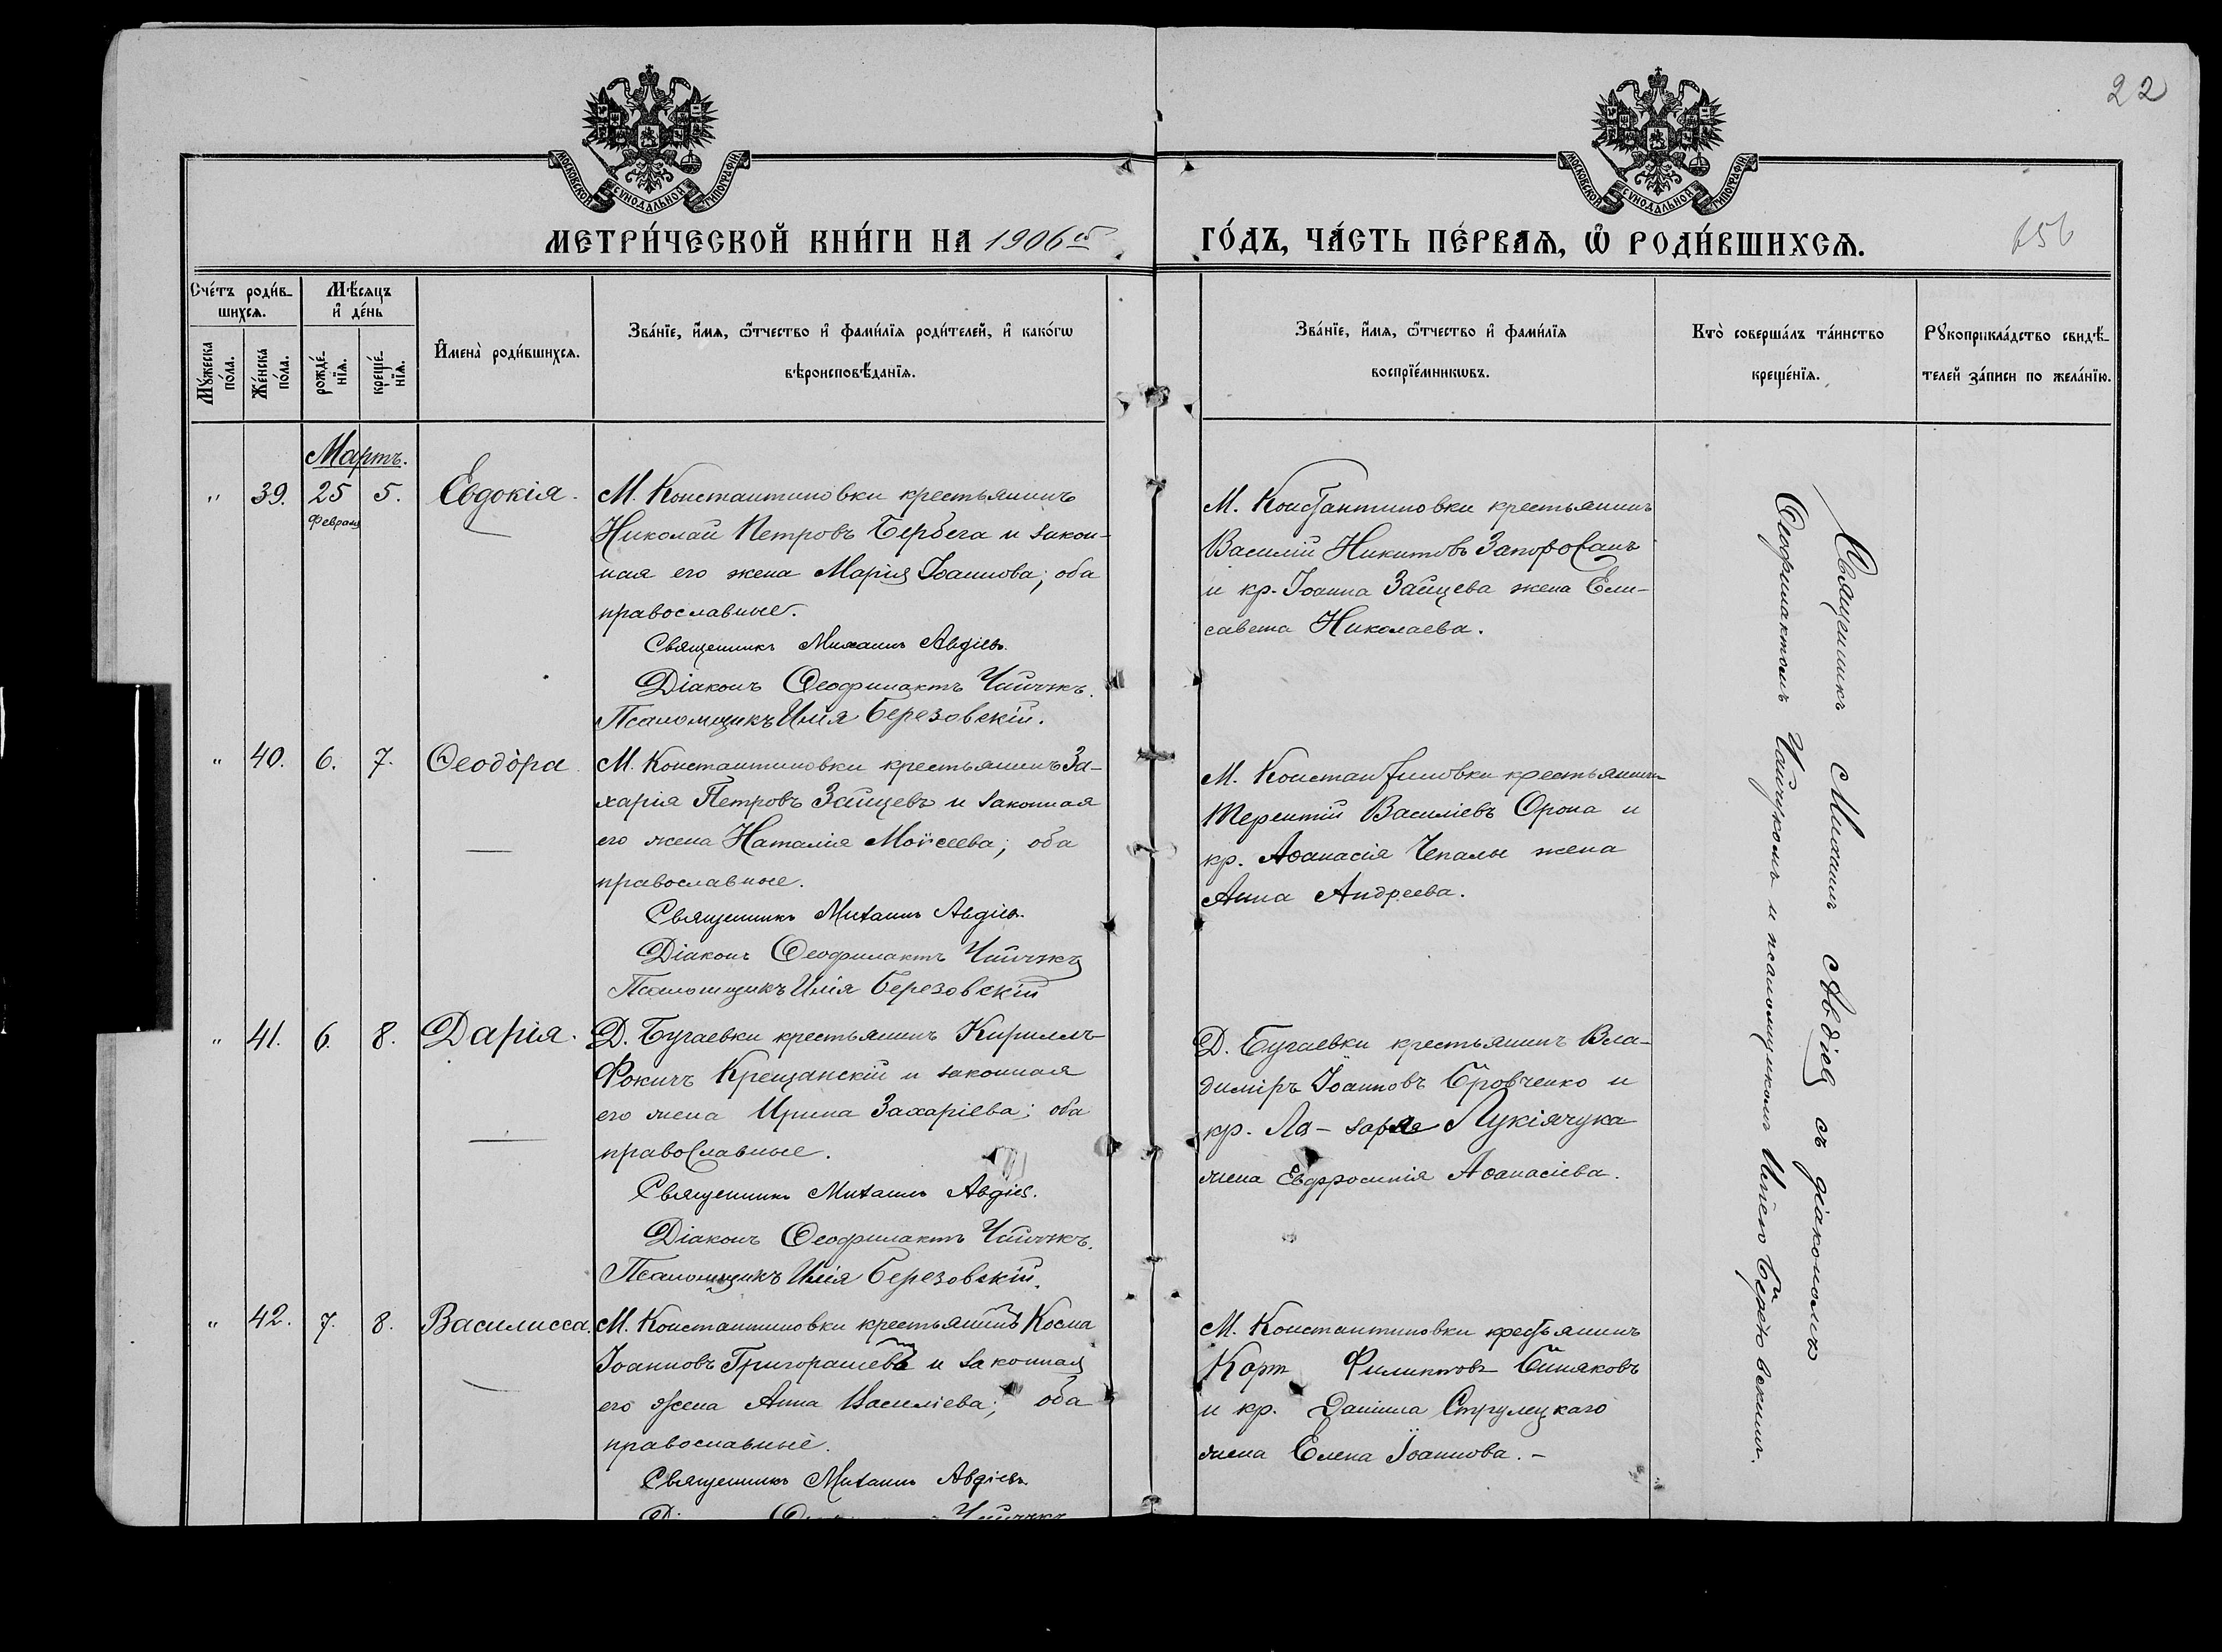 22
МОСКОВСКОЙ СѴНОДАЛЬНОЙ ТИПОГРАФІИ.
МОСКОВСКОЙ СѴНОДАЛЬНОЙ ТИПОГРАФІИ.
МЕТРИ́ЧЕСКОЙ КНИ́ГИ НА 1906й
ГО́ДЪ, ЧА́СТЬ ПЕ́РВАЯ, Ѡ҆ РОДИ́ВШИХСЯ.
656
Сче́тъ роди́в-
шихся.
Мѣ́сяцъ
и҆ де́нь
Мꙋ́жеска
по́ла.
Же́нска
по́ла.
рожде́-
нїя.
креще́-
нїя.
И҆мена̀ роди́вшихся.
Зва́нїе, и҆́мя, ѻ҆́тчество и҆ фами́лїя роди́телей, и҆ како́гѡ
вѣроисповѣ́данїя.
Зва́нїе, и҆́мя, ѻ҆́тчество и҆ фами́лїя
воспрїе́мникѡвъ.
Кто̀ соверша́лъ та́инство
креще́нїя.
Рꙋкоприкла́дство свидѣ́-
телей за́писи по жела́нїю.
Мартъ.
" 39. 25 5. Евдокія.
Февраля
М. Константиновки крестьянинъ
Николай Петровъ Бербега и закон-
ная его жена Марія Іоаннова; оба
православные.
Священникъ Михаилъ Авдіевъ.
Діаконъ Ѳеофилактъ Чайчукъ.
Псаломщикъ Илія Березовскій.
М. Константиновки крестьянинъ
Василій Никитовъ Запорожанъ
и кр. Іоанна Зайцева жена Ели-
савета Николаева.
" 40. 6. 7. Ѳеодора
М. Константиновки крестьянинъ За-
харія Петровъ Зайцевъ и законная
его жена Наталія Моѵсеева; оба
православные.
Священникъ Михаилъ Авдіевъ.
Діаконъ Ѳеофилактъ Чайчукъ
Псаломщикъ Илія Березовскій
М. Константиновки крестьянинъ
Терентій Василіевъ Орона и
кр. Аѳанасія Чепалы жена
Анна Андреева.
" 41. 6. 8. Дарія.
Д. Бугаевки крестьянинъ Кириллъ
Фокичъ Крещанскій и законная
его жена Ирина Захаріева; оба
православные.
Священникъ Михаилъ Авдіев.
Діаконъ Ѳеофилактъ Чайчукъ.
Псаломщикъ Илія Березовскій.
Д. Бугаевки крестьянинъ Вла-
диміръ Іоанновъ Бровченко и
кр. Ла-заря Лукіячука
жена Евфросинія Аѳанасіева.
" 42. 7. 8. Василисса.
М. Константиновки крестьянинъ Косма
Іоанновъ Григорашевъ и законная
его жена Анна Василіева; оба
православные.
Священникъ Михаилъ Авдіевъ
М. Константиновки крестьянинъ
Филиповъ Синяковъ
и кр. Даніила Струлецкаго
жена Елена Іоаннова. -
Священникъ Михаилъ Авдіевъ съ діакономъ
Ѳеофилактомъ Чайчукомъ и псаломщикомъ Иліею Березовскимъ.